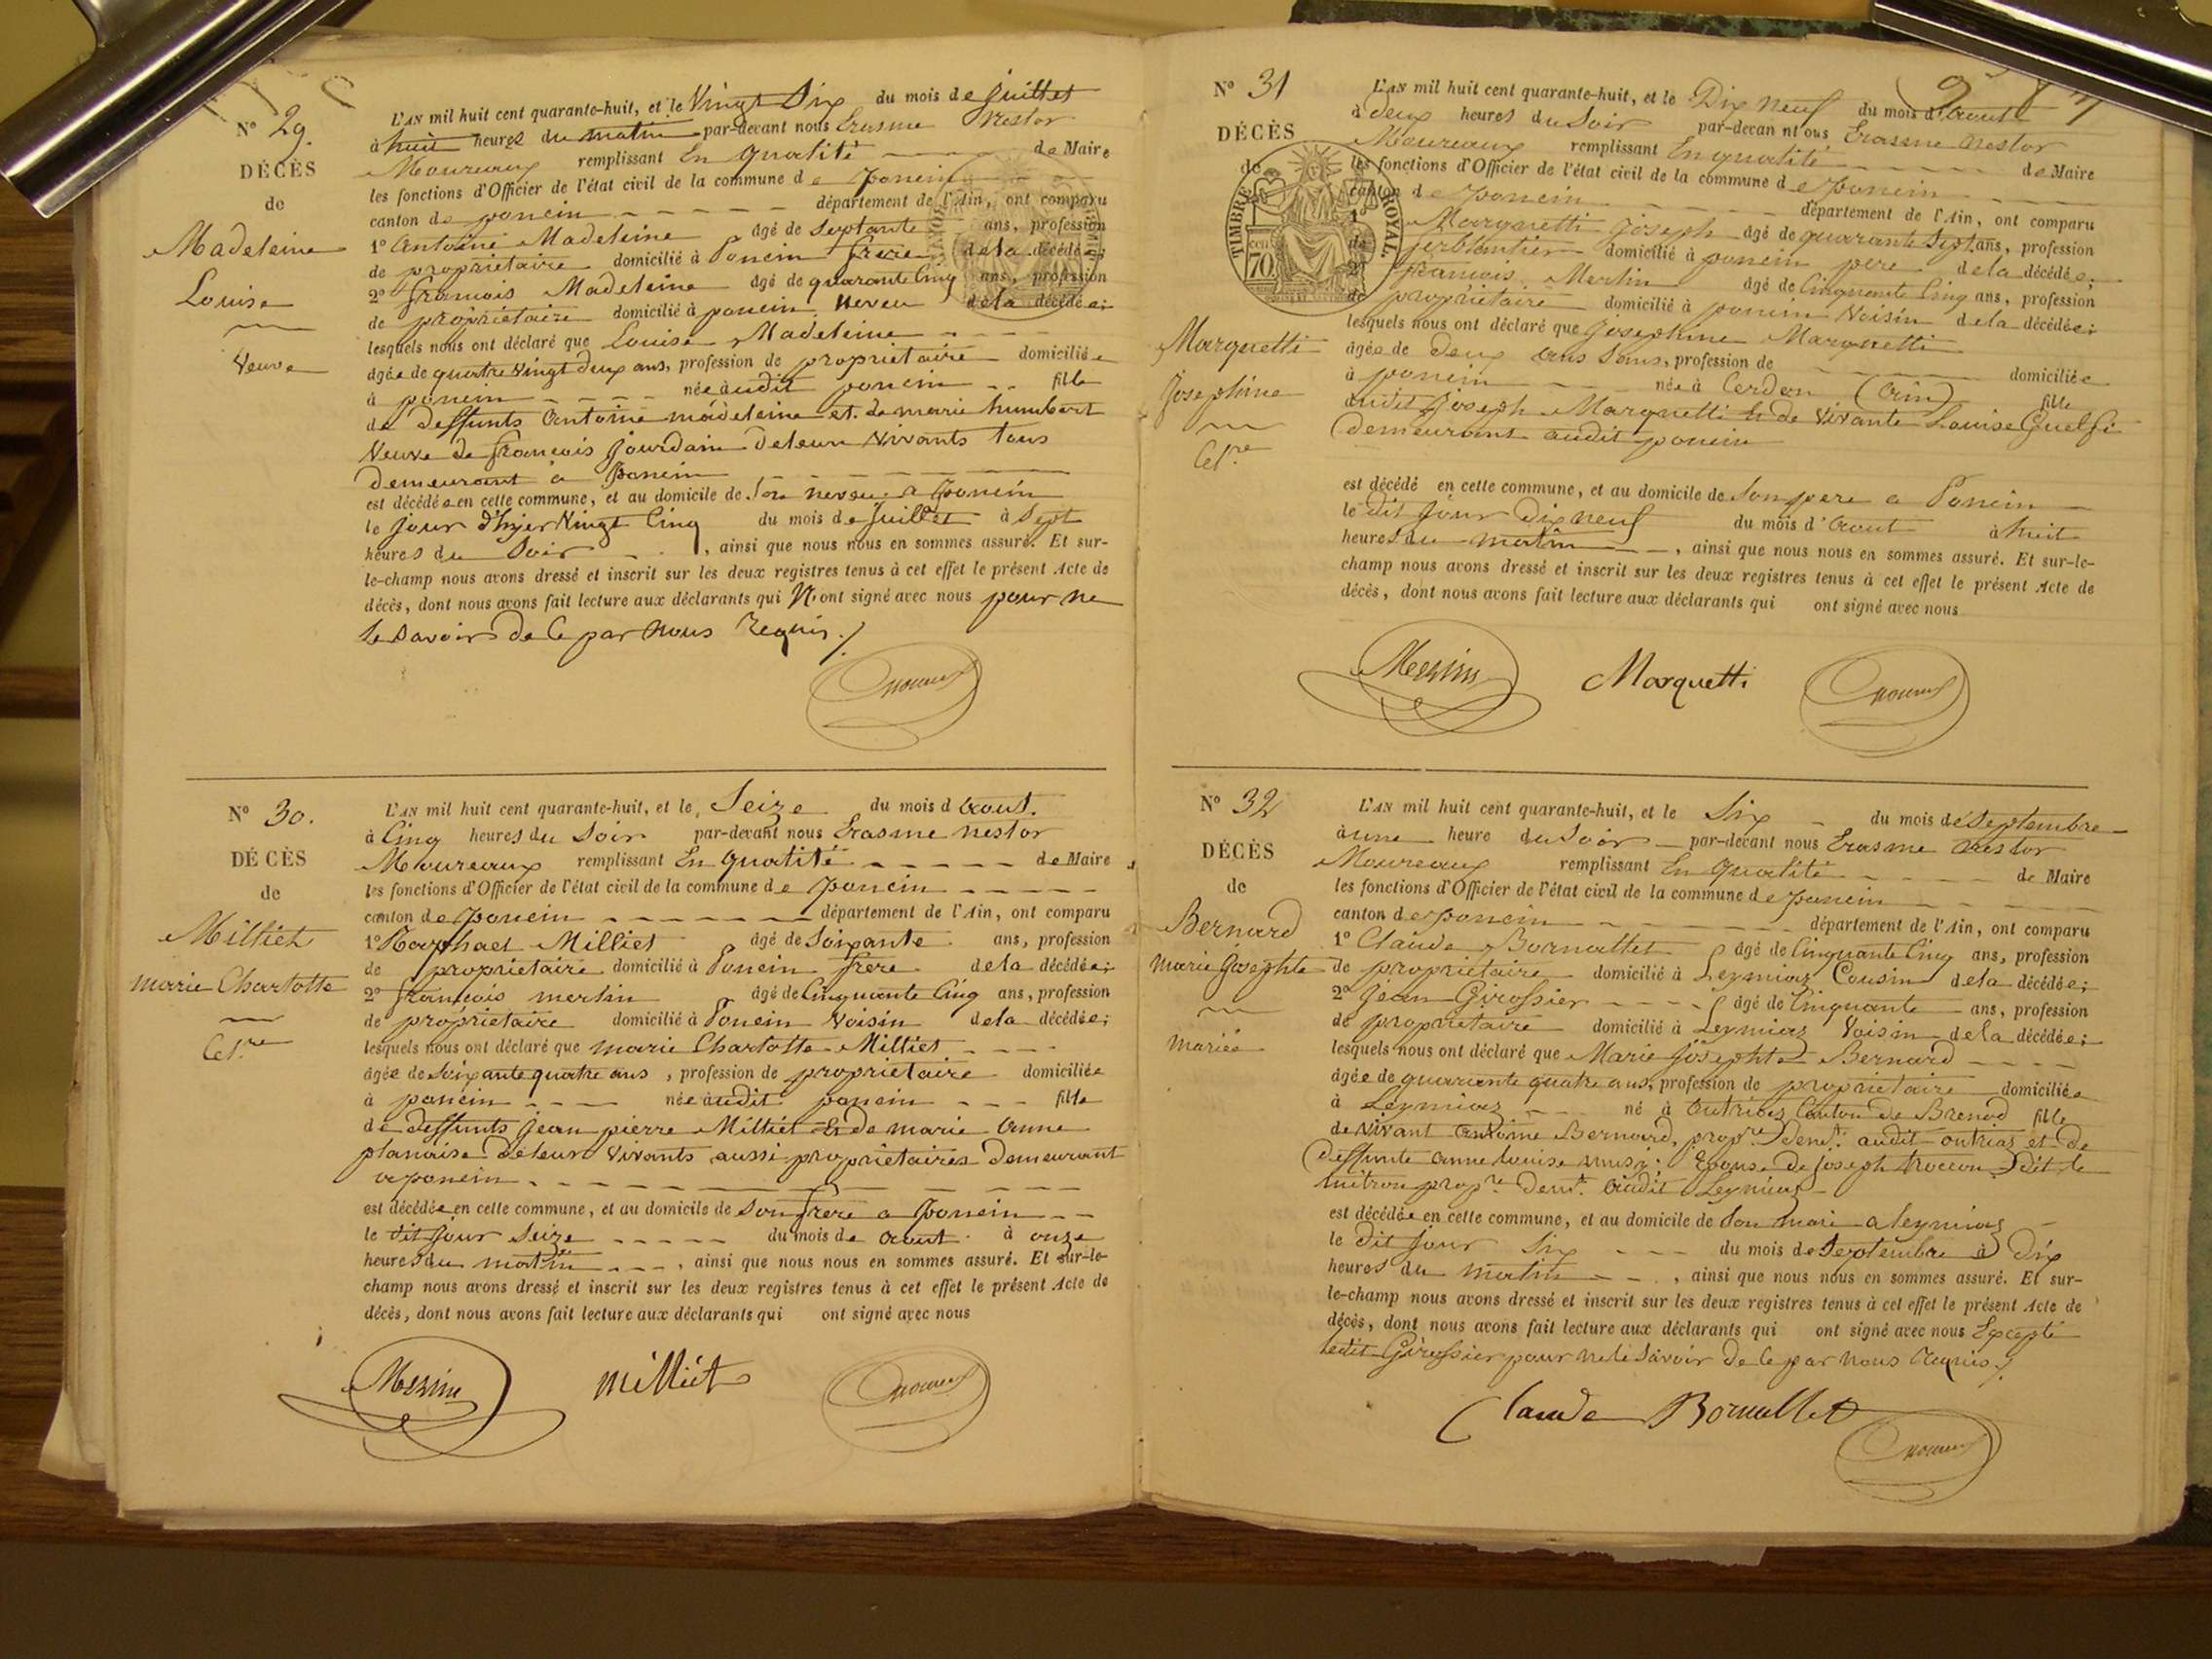 N° 29.
DÉCÈS
de
Madeleine
Louise
Veuve
L'AN mil huit cent quarante-huit, et le Vingt Six du mois de juillet
à huit heures du matin par-devant nous Erasme Nestor
Moureaux remplissant En qualité de Maire
les fonctions d'Officier de l'état civil de la commune de poncin
canton de poncin département de l'Ain, ont comparu
1° Antoine Madeleine âgé de Septante ans, profession
de propriétaire domicilié à Poncin frere de la décédée;
2° francois Madeleine âgé de quarante Cinq ans, profession
de propriétaire domicilié à poncin Neveu de la décédée;
lesquels nous ont déclaré que Louise Madeleine
âgée de quatre Vingt deux ans, profession de propriétaire domiciliée
à poncin née audit poncin fille
de deffunts Antoine madeleine et de marie humbert
Veuve de francois Jourdain de leur Vivants tous
Demeurant à Poncin
est décédée en cette commune, et au domicile de Son neveu a poncin
le jour d'hjer Vingt Cinq du mois de juillet à Sept
heures du Soir, ainsi que nous nous en sommes assuré. Et sur-
le-champ nous avons dressé et inscrit sur les deux registres tenus à cet effet le présent Acte de
décès, dont nous avons fait lecture aux déclarants qui N'ont signé avec nous pour ne
le Savoir de Ce par Nous Requis./
N° 30.
DÉCÈS
de
Milliet
marie Charlotte
Cel.re
L'AN mil huit cent quarante-huit, et le Seize du mois d'Aout.
à Cinq heures du Soir par-devant nous Erasme Nestor
Moureaux remplissant En qualité de Maire
les fonctions d'Officier de l'état civil de la commune de poncin
canton de poncin département de l'Ain, ont comparu
1° Raphael Milliet âgé de Soixante ans, profession
de propriétaire domicilié à Poncin frere de la décédée;
2° francois merlin âgé de Cinquante Cinq ans, profession
de propriétaire domicilié à Poncin Voisin de la décédée;
lesquels nous ont déclaré que marie Charlotte Milliet
âgée de Soixante quatre ans, profession de propriétaire domiciliée
à poncin née audit poncin fille
de deffunts Jean pierre Milliet Et de marie Anne
planaise de leur Vivants aussi propriétaires Demeurant
a poncin
est décédée en cette commune, et au domicile de Son frere a Poncin
le dit jour Seize du mois de Aout à onze
heures du matin, ainsi que nous nous en sommes assuré. Et sur-le-
champ nous avons dressé et inscrit sur les deux registres tenus à cet effet le présent Acte de
décès, dont nous avons fait lecture aux déclarants qui ont signé avec nous
milliet
N° 31
DÉCÈS
de
TIMBRE ROYAL
70
Marquetti
Josephine
Cel.re
L'AN mil huit cent quarante-huit, et le Dix Neuf du mois d'Aout
à deux heures du Soir par-devan nt ous Erasme Nestor
Moureaux remplissant En qualité de Maire
les fonctions d'Officier de l'état civil de la commune de poncin
canton de poncin département de l'Ain, ont comparu
1° Marquetti Joseph âgé de quarante Sept ans, profession
de ferblantier domicilié à poncin pere de la décédée;
2° francois Merlin âgé de Cinquante Cinq ans, profession
de propriétaire domicilié à poncin Voisin de la décédée;
lesquels nous ont déclaré que Josephine Marquetti
âgée de deux ans, profession de domiciliée
à poncin née à Cerdon (Ain) fille
dudit Joseph Marquetti Et de Vivante Louise Guelfi
Demeurans audit poncin
est décédé en cette commune, et au domicile de Son pere a Poncin
le dit jour Dix neuf du mois d'Aout à huit
heures du matin, ainsi que nous nous en sommes assuré. Et sur-le-
champ nous avons dressé et inscrit sur les deux registres tenus à cet effet le présent Acte de
décès, dont nous avons fait lecture aux déclarants qui ont signé avec nous
Marquetti
N° 32
DÉCÈS
de
Bernard
Marie Josephte
Mariée
L'AN mil huit cent quarante-huit, et le Six du mois de Septembre
à une heure du Soir par-devant nous Erasme Nestor
Moureaux remplissant En Qualité de Maire
les fonctions d'Officier de l'état civil de la commune de poncin
canton de poncin département de l'Ain, ont comparu
1° Claude Bornallet âgé de Cinquante Cinq ans, profession
de propriétaire domicilié à Leymiaz Cousin de la décédée;
2° Jean Girossier âgé de Cinquante ans, profession
de propriétaire domicilié à Leymiaz Voisin de la décédée;
lesquels nous ont déclaré que Marie Josephte Bernard
âgée de quarante quatre ans, profession de propriétaire domiciliée
à Leymiaz né à Outriaz Canton de Brenod fille
de Vivant Antoine Bernard, prop.re dem.t audit outriaz et de
Deffunte anne Louise; Epouse de Joseph dit le
mitron prop.re dem.t audit Leymiaz
est décédée en cette commune, et au domicile de Son mari a leymiaz
le dit jour Six du mois de Septembre à Dix
heures du matin, ainsi que nous nous en sommes assuré. Et sur-
le-champ nous avons dressé et inscrit sur les deux registres tenus à cet effet le présent Acte de
décès, dont nous avons fait lecture aux déclarants qui ont signé avec nous Excepté
ledit Girossier pour ne le Savoir de Ce par Nous Requis./
Claude Bornallet